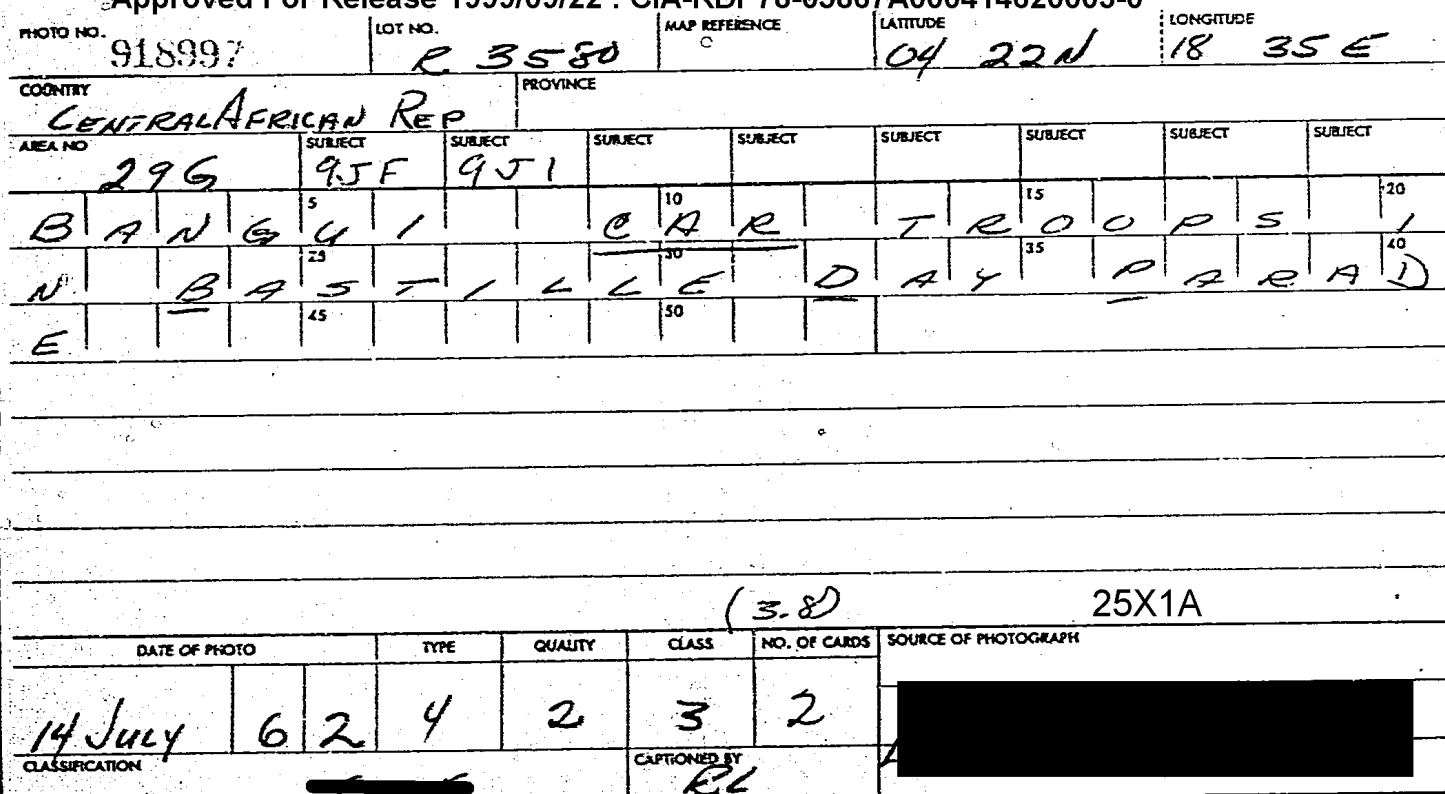 Approved For Release 1999/09/22 : CIA-RDP78-05867A000414620005-0
PHOTO NO. 918997 LOT NO. R 3580 MAP REFERENCE LATITUDE 04 22N LONGITUDE 18 35 E
COUNTRY CENTRAL AFRICAN REP PROVINCE
AREA NO 29G SUBJECT 9JF SUBJECT 9J1 SUBJECT SUBJECT SUBJECT SUBJECT SUBJECT SUBJECT
5 10 15 20
BANGUI CAR TROOPS I
25 30 35 40
N BASTILLE DAY PARAD
45 50
E
(3.8) 25X1A
DATE OF PHOTO TYPE QUALITY CLASS NO. OF CARDS SOURCE OF PHOTOGRAPH
14 July 6 2 4 2 3 2
CLASSIFICATION CAPTIONED BY RL